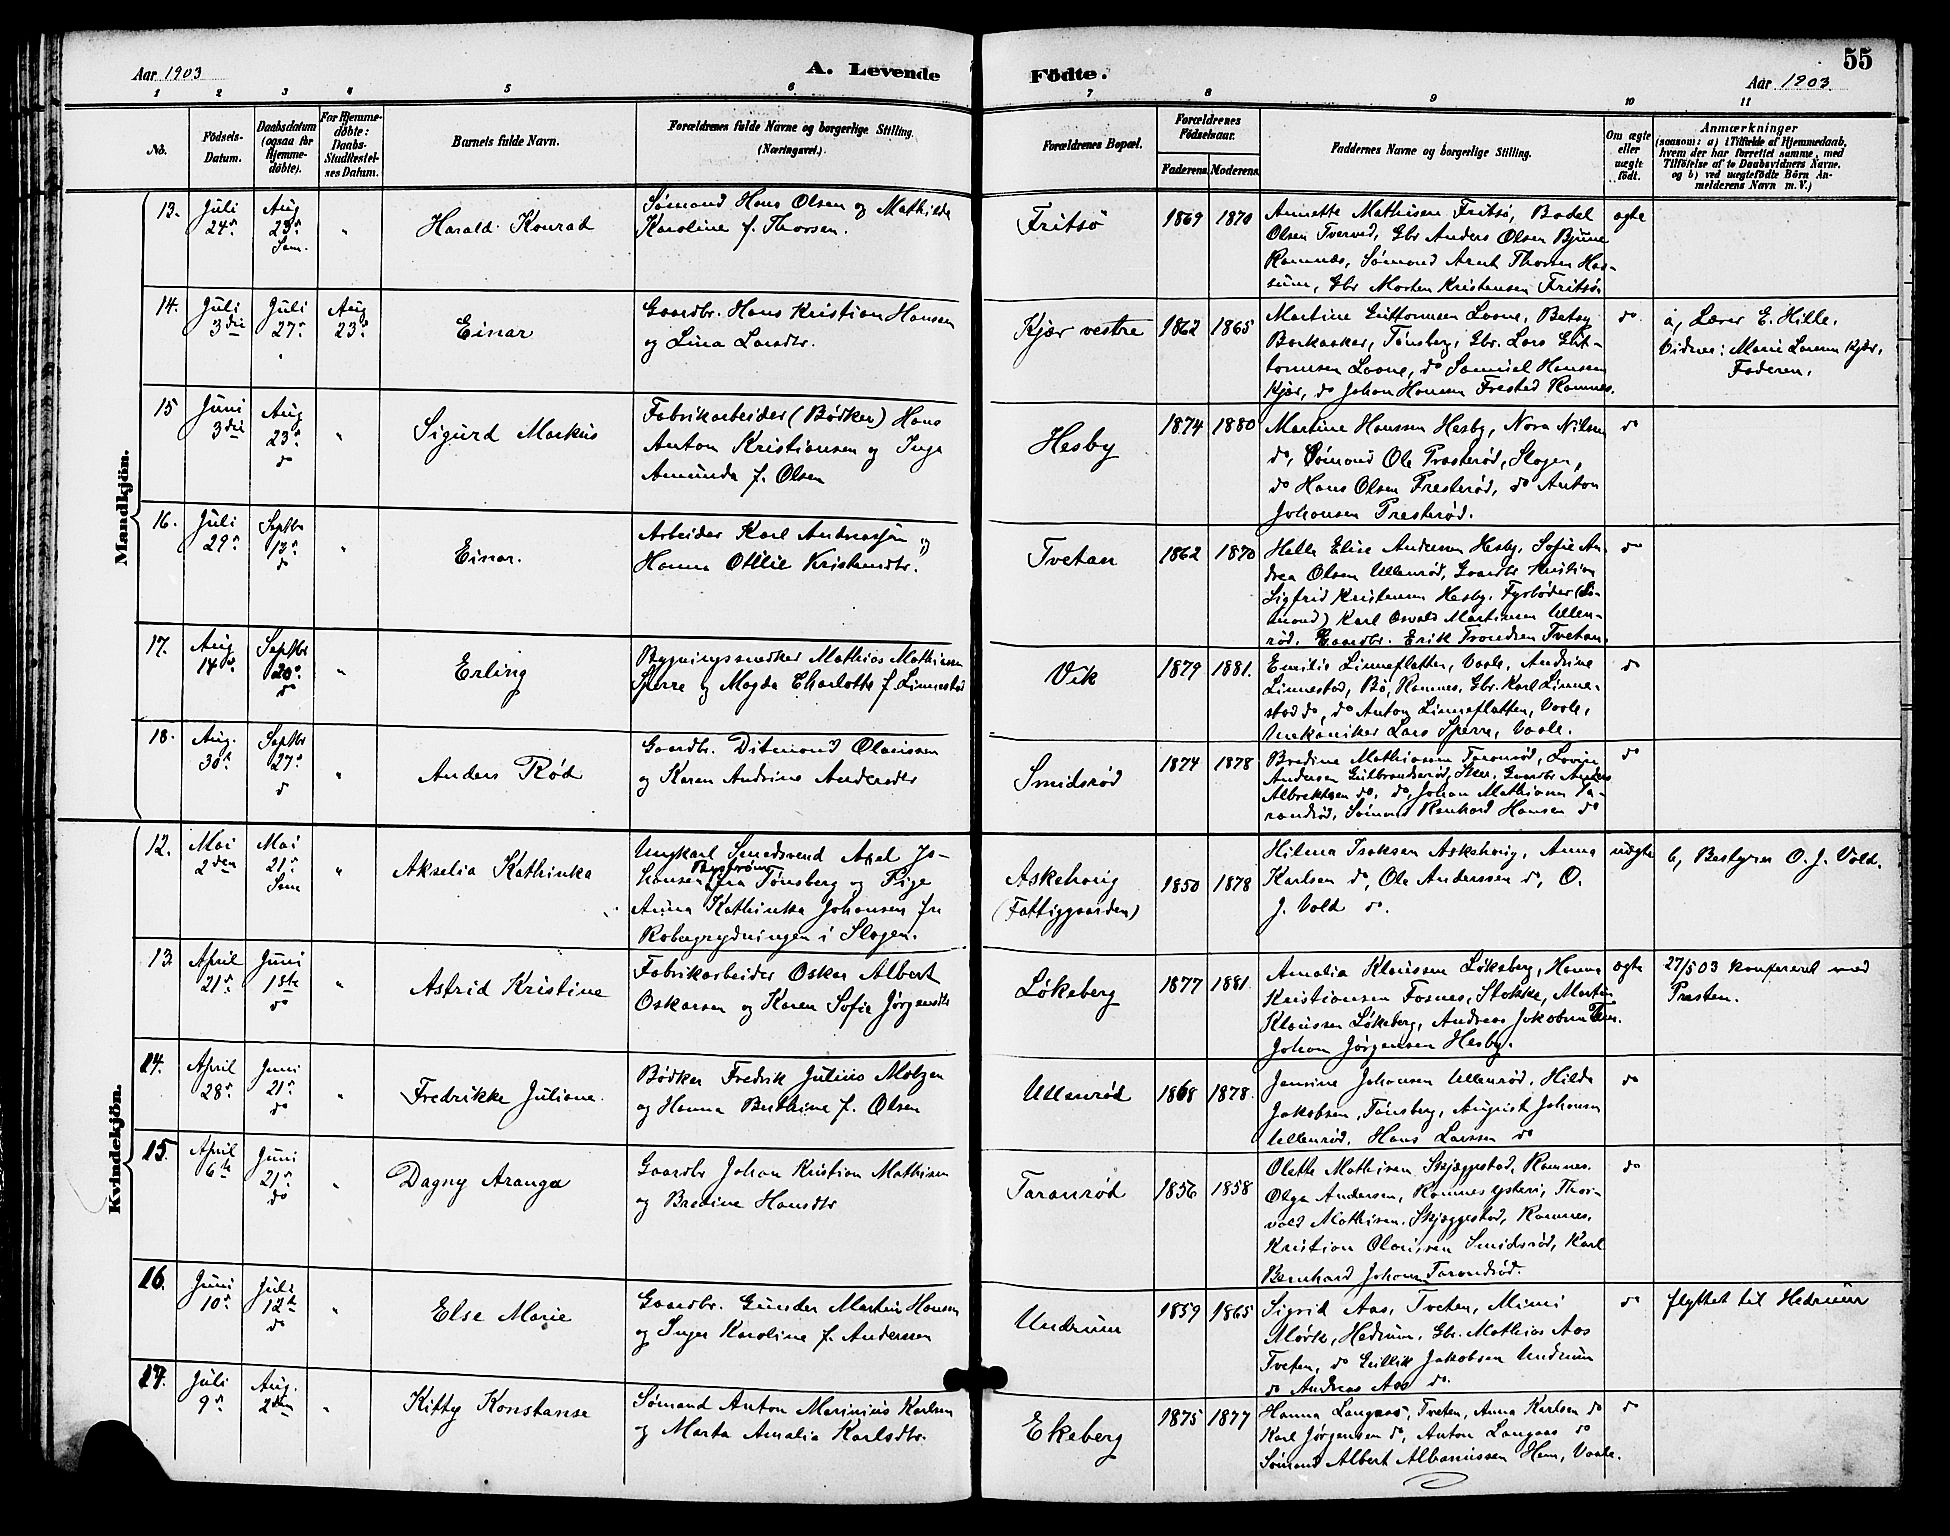 Aar 1903
A. Levende
Födte.
55
Aar 1903
1 2 3 4 5 6 7 8 9 10 11
No.
Födsels-
Datum.
Daabsdatum
(ogsaa for
Hjemme-
döbte).
For Hjemme-
döbte:
Daabs-
Stadfæstel-
ses Datum.
Barnets fulde Navn.
Forældrenes fulde Navne og borgerlige Stilling.
(Næringsvei.)
Forældrenes Bopæl.
Forældrenes
Födselsaar.
Faderens. Moderens.
Faddernes Navne og borgerlige Stilling.
Om ægte
eller
uægte
født.
Anmærkninger
(saasom: a) i Tilfælde af Hjemmedaab,
hvem der har forrettet samme, med
Tilföielse af to Daabsvidners Navne.
og b) ved uægtefödte Börn An-
melderens Navn m. V.)
Mandkjön.
13.
Juli
24de
Aug
23de
Sem.
"
Harald Konrad
Sømand Hans Olsen og Mathilde
Karoline f. Thorsen.
Fritsø
1869 1870
Annette Mathisen Fritsø, Bodel
Olsen Tverved, Gbr Anders Olsen Bjune
Ramnæs, Sømand Arnt Thorsen Has-
sum, Gbr Morten Kristensen Fritsø.
ægte
14.
Juli
3die
Juli
27de
Aug
23de
Einar
Gaardbr. Hans Kristian Hansen
og Lina Larsdtr.
Kjær vestre
1862 1865
Martine Guttormsen Lovne, Betsy
Barkaaker, Tønsberg, Gbr. Lars Gut-
tormsen Lovne, do Samuel Hansen
Kjær, do Johan Hansen Frestad Ramnes.
do
a, Lærer E. Hille.
Vidner: Marie Larsen Kjær,
Faderen.
15
Juni
3die
Aug
23de
do
"
Sigurd Markus
Fabrikarbeider (Bødker) Hans
Anton Kristiansen og Inga
Amunda f. Olsen
Hesby
1874 1880
Martine Hanssen Hesby, Nora Nilsen
do, Sømand Ole Præsterød, Slagen,
do Hans Olsen Presterød, do Anton
Johansen Presterød.
do
16.
Juli
29de
Septbr
13de
do
"
Einar.
Arbeider Karl Andreassen og
Hanna Ottilie Kristensdtr.
Tvetan
1862 1870
Helle Elise Andersen Hesby, Sofie An-
drea Olsen Ullenrød, Gaardbr Kristian
Sigfrid Kristensen Hesby. Fyrbøder (Sø-
mand) Karl Osvald Martinsen Ullen-
rød. Gaardbr. Erik Trondsen Tvetan.
do
17.
Aug
14de
Septbr
20de
do
"
Erling
Bygningssnedker Mathias Mathiesen
Sperre og Magda Charlotte f. Linnestad
Vik
1879 1881.
Emilie Linneflatten, Vaale, Andrine
Linnestad, Bø, Ramnes, Gbr. Karl Linne-
stad do, do Anton Linneflatten, Vaale,
Mekaniker Lars Sperre, Vaale.
do
18.
Aug.
30te
Septbr
27de
do
"
Anders Rød
Gaardbr. Ditmand Olaussen
og Karen Andrine Andersdtr
Smidsrød
1874 1878
Bredine Mathiassen Taranrød, Lovise
Andersen Gulbrandsrød, Sem, Gaardbr Anders
Albrektsen do, do, Johan Mathisen Ta-
ranrød, Sømand Renhard Hansen do
do
Kvindekjön.
12.
Mai
2den
Mai
21de
Sem
"
Akselia Kathinka
Ungkarl Smedsvend Axel Jo-
hansen Byström fra Tønsberg og Pige
Anna Kathinka Johansen fra
Robergrydningen i Slagen.
Askehoug
(Fattiggaarden)
1850 1878
Hilma Isaksen Askehoug, Anna
Karlsen do, Ole Anderssen do, O.
J. Vold do.
uægte
b, Bestyrer O. J. Vold.
13.
April
21de
Juni
1ste
do
"
Astrid Kristine
Fabrikarbeider Oskar Albert
Oskarsen og Karen Sofie Jørgensdtr
Løkeberg
1877 1881.
Amalia Klaussen Løkeberg, Hanna
Kristiansen Fosnes, Stokke, Martin
Klaussen Løkeberg, Andreas Jakobsen
Johan Jørgensen Hesby.
ægte
27/5 03 konfereret med
Presten.
14.
April
28de
Juni
21de
do
"
Fredrikke Juliane.
Bødker Fredrik Julius Molzen
og Hanna Berthine f. Olsen
Ullenrød
1868 1878.
Jensine Johansen Ullenrød, Hilda
Jakobsen, Tønsberg, August Johansen
Ullenrød, Hans Larssen do
do
15.
April
6te
Juni
21de
do
"
Dagny Aranga
Gaardbr Johan Kristian Mathisen
og Bredine Hansdtr
Taranrød
1856 1858
Olette Mathisen Skjæggestad, Ramnes.
Olga Andersen, Ramnes ysteri, Thor-
vald Mathisen, Skjæggestad, Ramnes.
Kristian Olaussen Smidsrød, Karl
Bernhard Johansen Taranrød.
do
16.
Juni
10de
Juli
12te
do
"
Else Marie
Gaardbr. Gunder Martin Hansen
og Inger Karoline f. Anderssen
Undrum
1859 1865
Sigrid Aas, Tveten, Mimi
Mørk, Hedrum, Gbr. Mathias Aas
Tveten, do Gullik Jakobsen Undrum
do Andreas Aas do.
do
flyttet til Hedrum
17.
Juli
9de
Aug.
2den
"
Kitty Konstanse
Sømand Anton Marinius Karlsen
og Marta Amalia Karlsdtr.
Ekeberg
1875 1877
Hanna Langaas, Tveten, Anna Karlsen do
Karl Jørgensen do, Anton Langaas do
Sømand Albert Albaniussen Hem, Vaale.
do